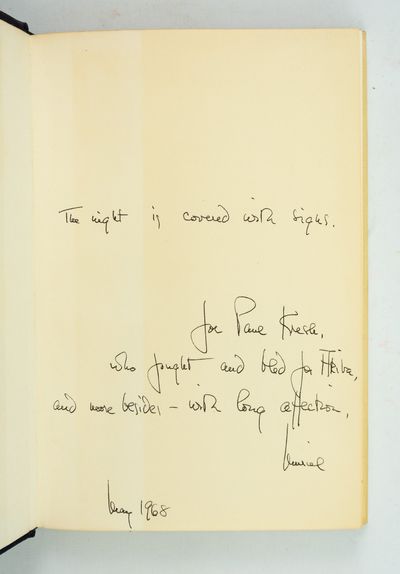 The night is covered with signs.
for Paul Kresh,
who fought and bled for Akiba,
and more besides – with long affection,
Muriel
May 1968